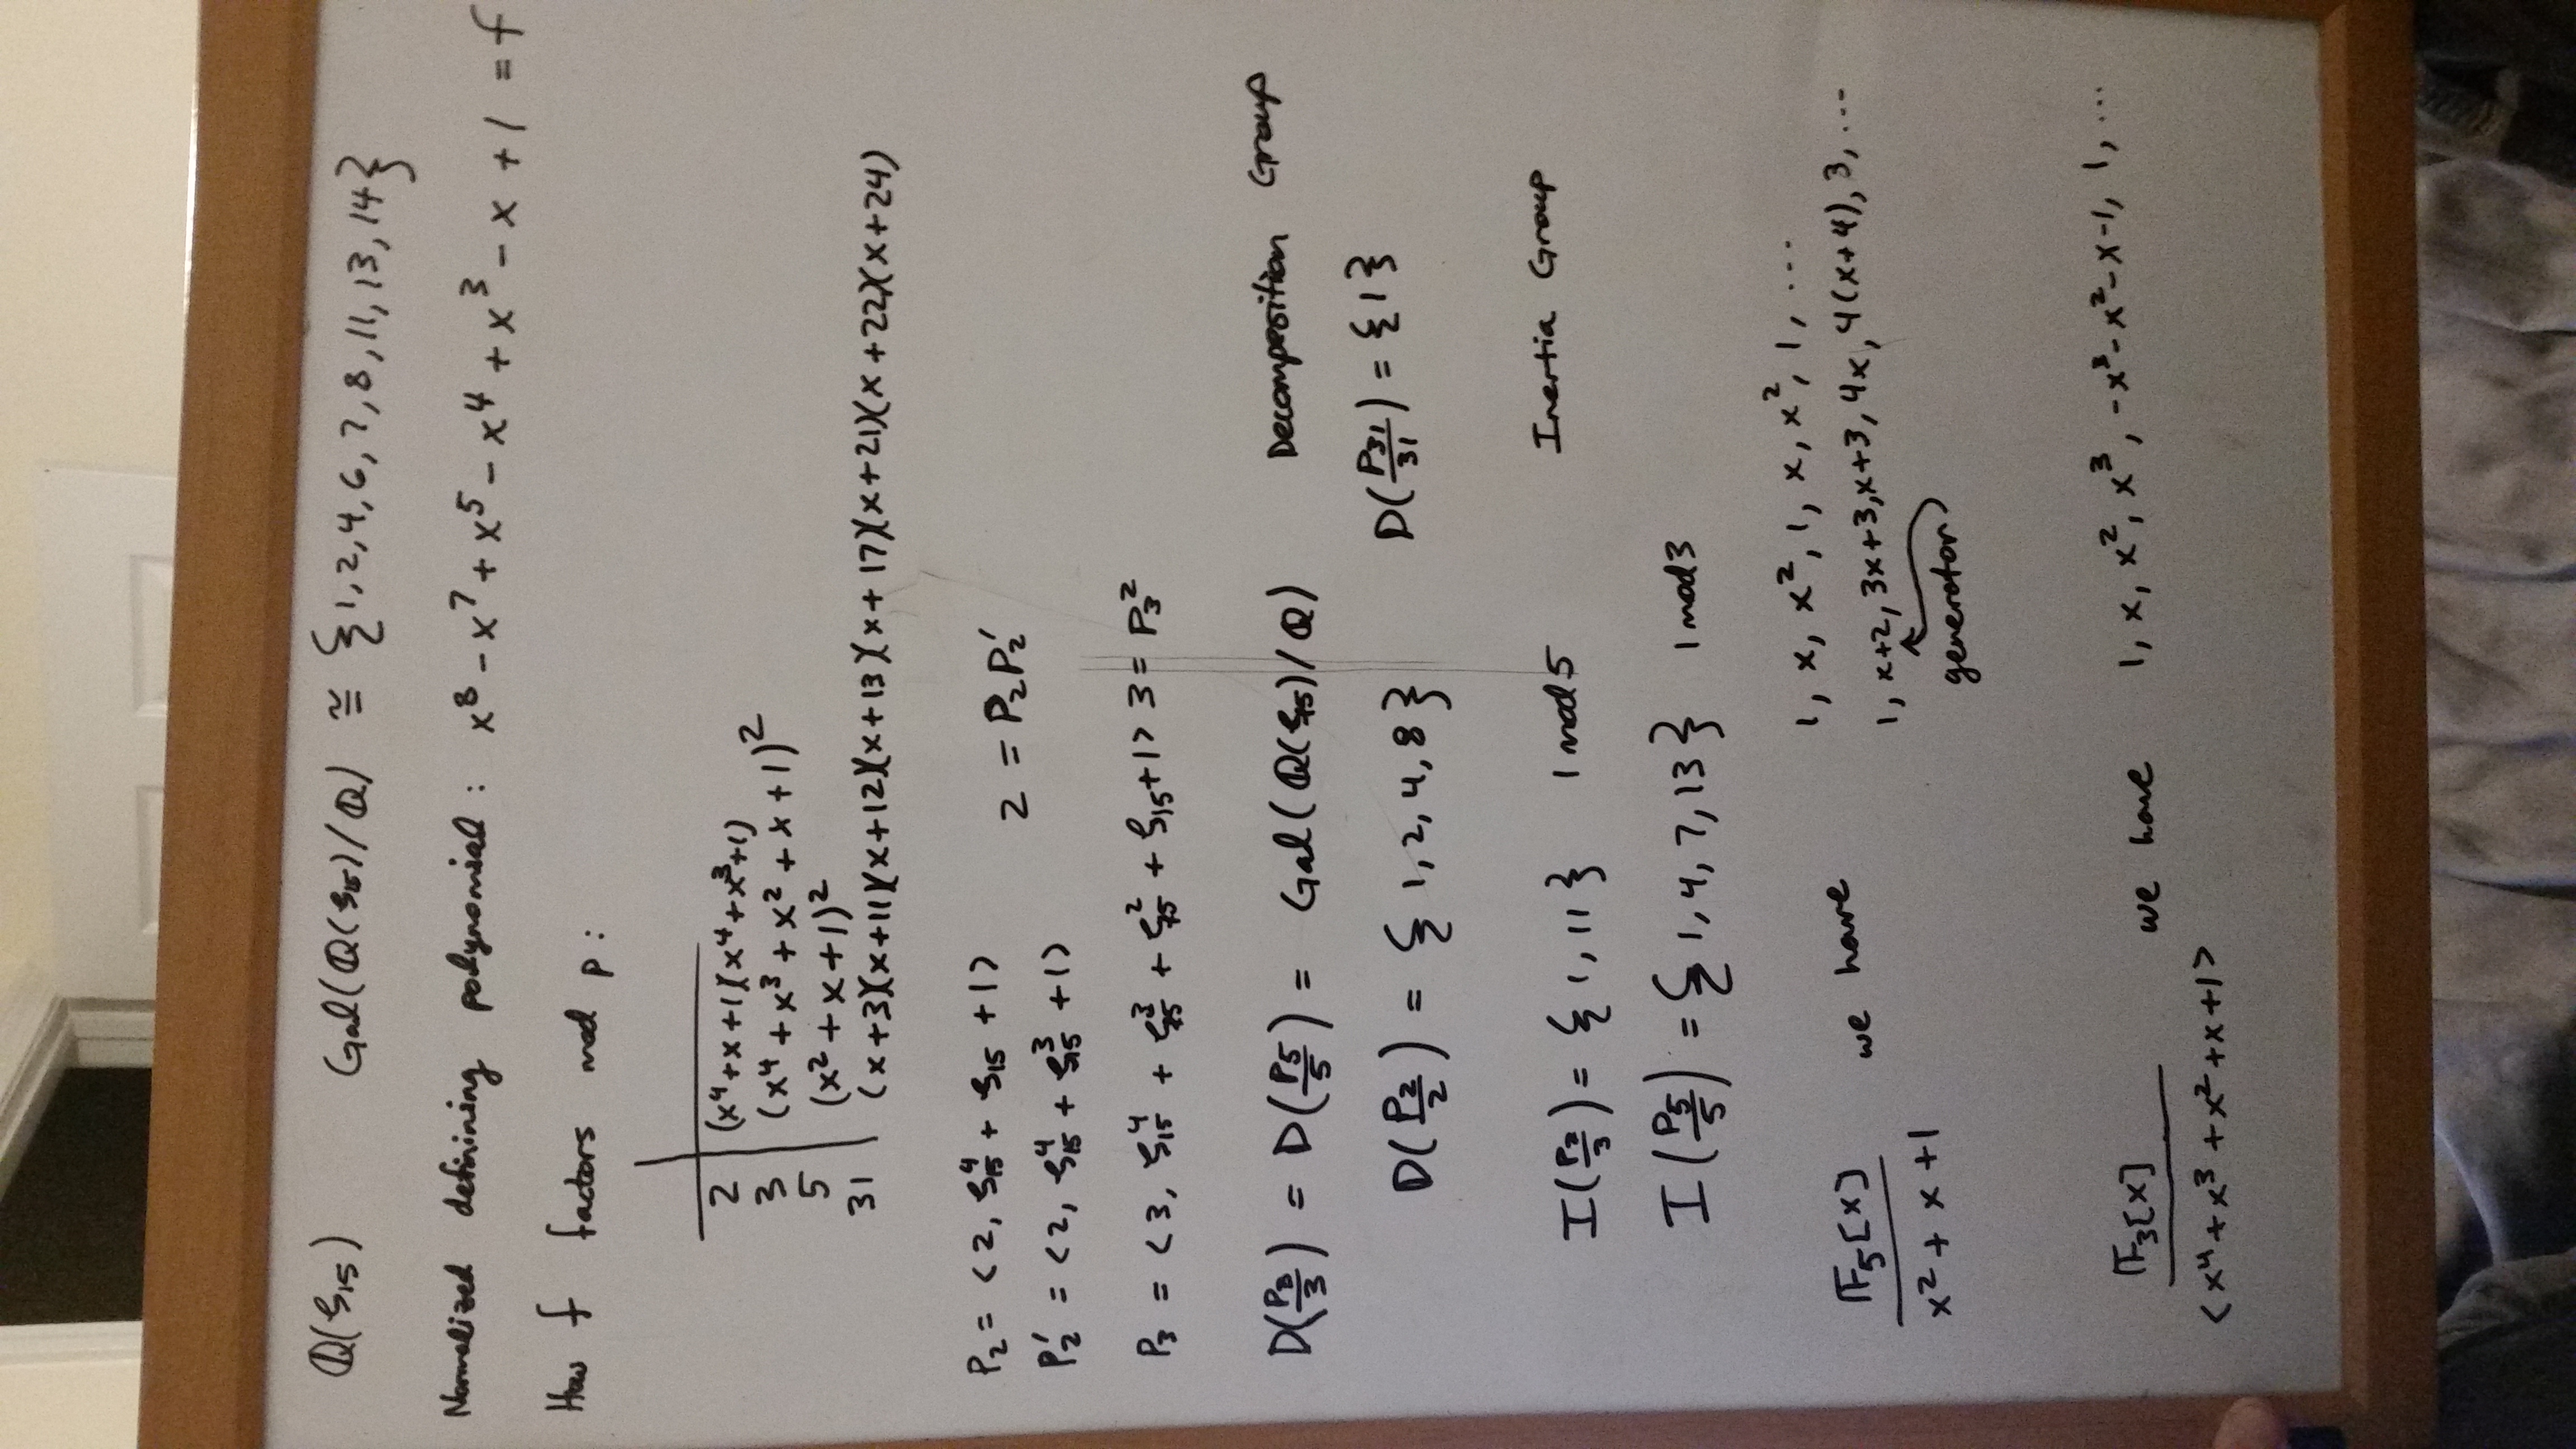 ℚ(ζ₁₅) Gal(ℚ(ζ₁₅)/ℚ) ≅ {1,2,4,6,7,8,11,13,14}
Normalized definining polynomial: x⁸ - x⁷ + x⁵ - x⁴ + x³ - x + 1 = f
How f factors mod p:
2 (x⁴+x+1)(x⁴+x³+1)
3 (x⁴+x³+x²+x+1)²
5 (x²+x+1)²
31 (x+3)(x+11)(x+12)(x+13)(x+17)(x+21)(x+22)(x+24)
P₂ = <2, ζ₁₅⁴ + ζ₁₅ + 1> 2 = P₂P₂′
P₂′ = <2, ζ₁₅⁴ + ζ₁₅³ + 1>
P₃ = <3, ζ₁₅⁴ + ζ₁₅³ + ζ₁₅² + ζ₁₅ + 1> 3 = P₃²
D(P₃/3) = D(P₅/5) = Gal(ℚ(ζ₁₅)/ℚ) Decomposition Group
D(P₂/2) = {1,2,4,8} D(P₃₁/31) = {1}
I(P₃/3) = {1,11} 1 mod 5 Inertia Group
I(P₅/5) = {1,4,7,13} 1 mod 3
1, x, x², 1, x, x², 1, ...
𝔽₅[x]/x²+x+1 we have 1, x+2, 3x+3, x+3, 4x, 4(x+4), 3, ...
generator
𝔽₃[x]/<x⁴+x³+x²+x+1> we have 1, x, x², x³, -x³-x²-x-1, 1, ...